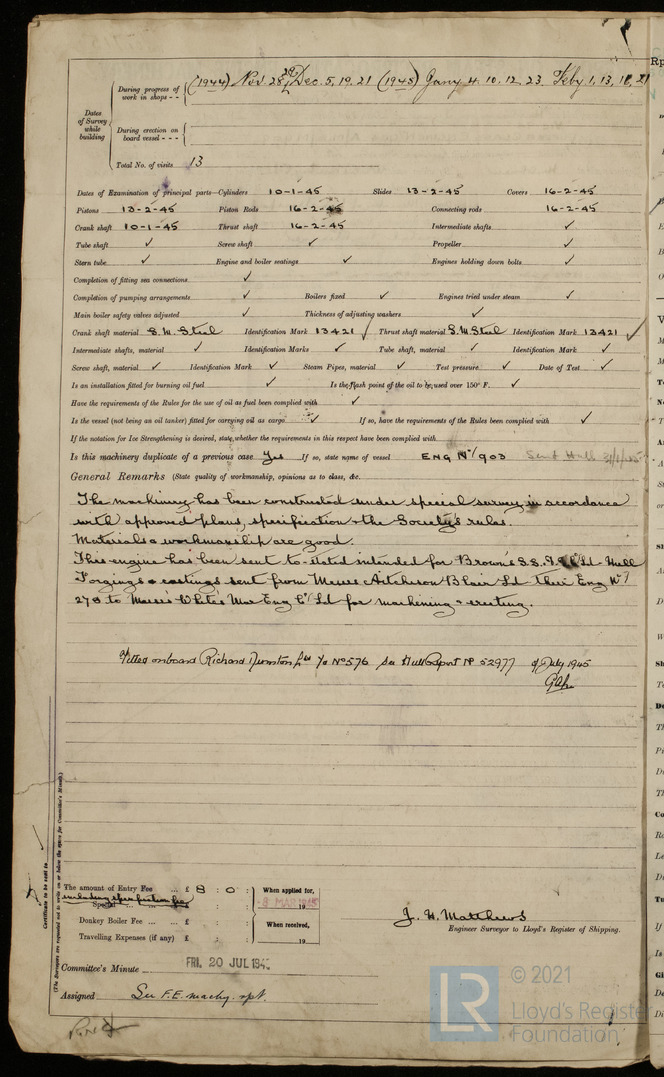 Dates of Survey while building
During progress of work in shops - - (1944) Nov 28, 29 Dec. 5, 19, 21 (1945) Jany 4. 10. 12. 23. Feby 1, 13, 16, 21
During erection on board vessel - - -
Total No. of visits 13
Dates of Examination of principal parts—Cylinders 10-1-45 Slides 13-2-45 Covers 16-2-45
Pistons 13-2-45 Piston Rods 16-2-45 Connecting rods 16-2-45
Crank shaft 10-1-45 Thrust shaft 16-2-45 Intermediate shafts ✓
Tube shaft ✓ Screw shaft ✓ Propeller ✓
Stern tube ✓ Engine and boiler seatings ✓ Engines holding down bolts ✓
Completion of fitting sea connections ✓
Completion of pumping arrangements ✓ Boilers fixed ✓ Engines tried under steam ✓
Main boiler safety valves adjusted ✓ Thickness of adjusting washers ✓
Crank shaft material S.M. Steel Identification Mark 13421 ✓ Thrust shaft material S.M Steel Identification Mark 13421 ✓
Intermediate shafts, material ✓ Identification Marks ✓ Tube shaft, material ✓ Identification Mark ✓
Screw shaft, material ✓ Identification Mark ✓ Steam Pipes, material ✓ Test pressure ✓ Date of Test ✓
Is an installation fitted for burning oil fuel ✓ Is the flash point of the oil to be used over 150° F. ✓
Have the requirements of the Rules for the use of oil as fuel been complied with ✓
Is the vessel (not being an oil tanker) fitted for carrying oil as cargo ✓ If so, have the requirements of the Rules been complied with ✓
If the notation for Ice Strengthening is desired, state whether the requirements in this respect have been complied with
Is this machinery duplicate of a previous case Yes If so, state name of vessel ENG No/903 Sent Hull
General Remarks (State quality of workmanship, opinions as to class, &c.
The machinery has been constructed under special survey in accordance
with approved plans, specification & the Society's rules.
Materials & workmanship are good.
This engine has been sent to stated intended for Brown's S.S. Ld - Hull
Forgings & castings sent from Messrs Aitchison Blair Ld their Eng No/
278 to Messrs White's Mar Eng Co/ Ld for machining & erecting.
Fitted onboard Richard Dunston Ltd Yd No 576 See Hull Report No 52977 of July 1945
The amount of Entry Fee ... £ 8 : 0 : When applied for,
including specification fee
Special ... : : -8 MAR 1945 19
Donkey Boiler Fee ... ... £ : : When received,
Travelling Expenses (if any) £ : : 19
J. H. Matthews
Engineer Surveyor to Lloyd's Register of Shipping.
Committee's Minute FRI. 20 JUL 1945
Assigned See F.E. machy. rpt.
Certificate to be sent to
(The Surveyors are requested not to write on or below the space for Committee's Minute.)
LR © 2021
Lloyd's Register
Foundation